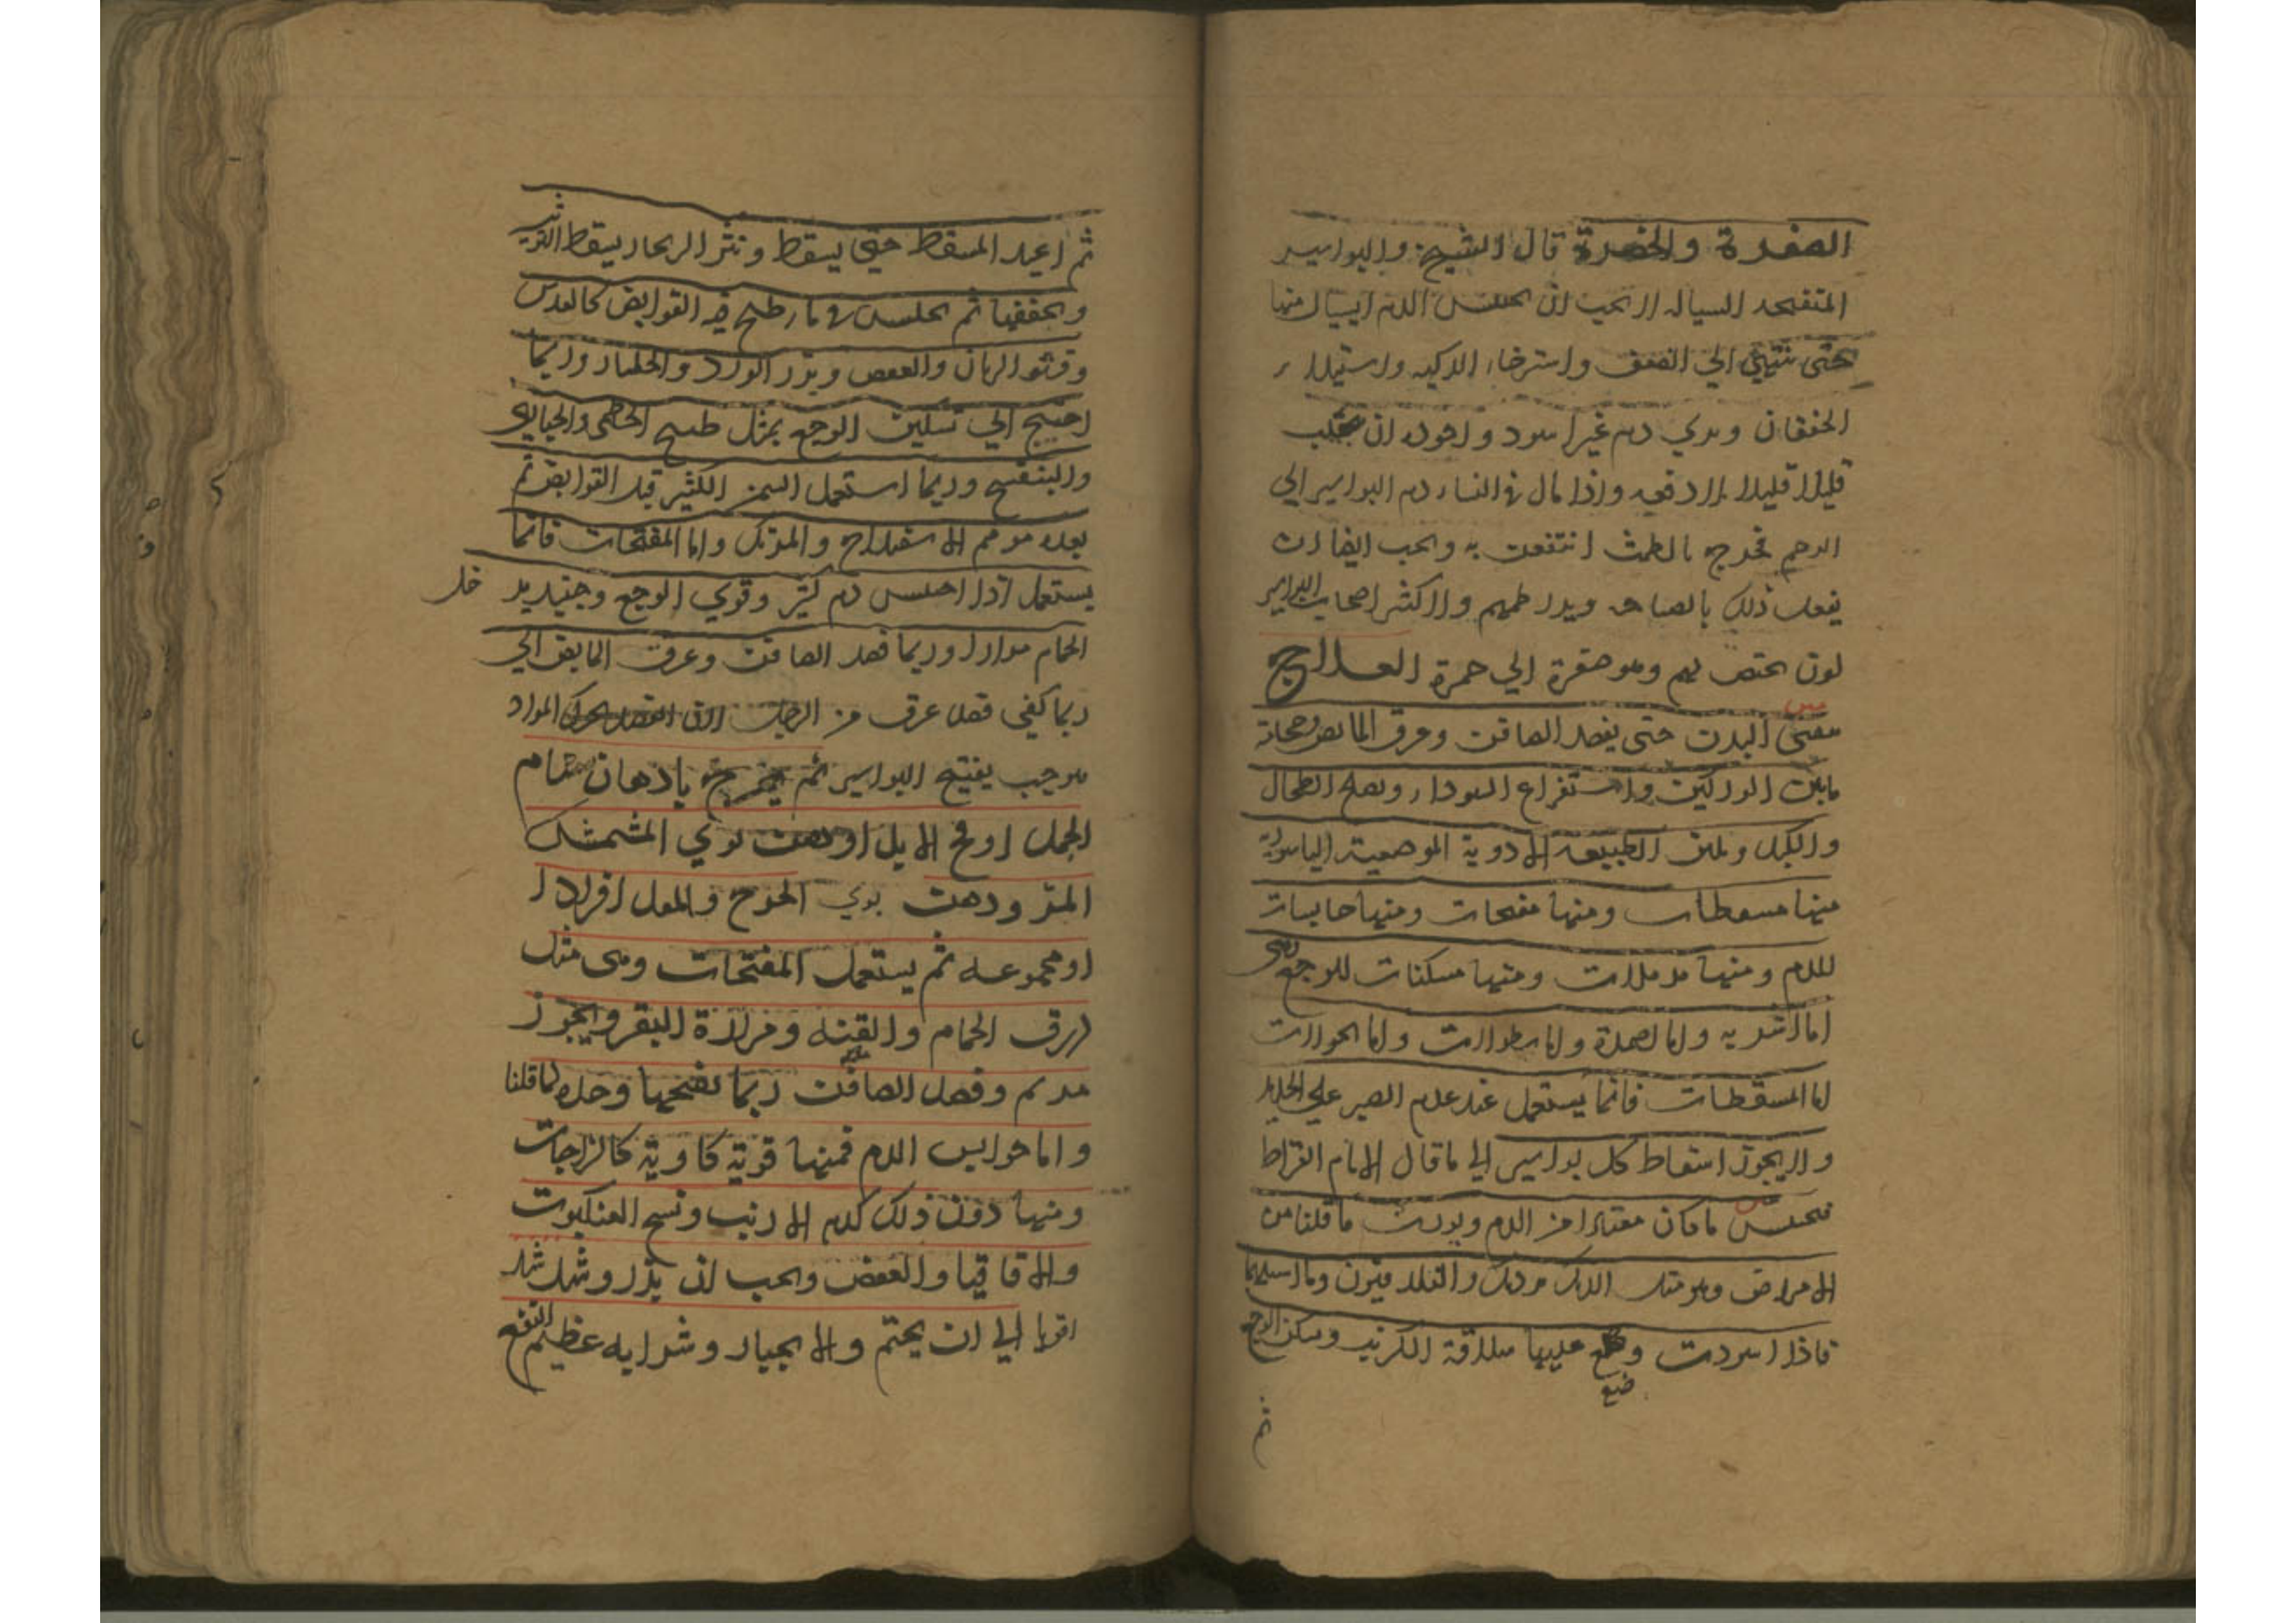 الصفرة والخضرة قال الشيخ والبواسير
المتفتحة السيالة لا يجب ان يحبس الدم السيال منها
حتى تنتهي الي الضعف واسترخاء الركبة واستيلاء
الخفقان ويري دم غير اسود واجوده ان يجلب
قليلا قليلا لا دفعه واذا مال في النساء دم البواسير الي
الرحم فخرج بالطمث انتفعت به ويجب ايضا ان
يفعل ذلك بالصناعه ويدر طمثهم ولاكثر اصحاب البواسير
لون يختص بهم وهو صفرة الي خمرة العلاج
البدن حتى يفصد الصافن وعرق المابض وحجامة
مابين الوركين واستفراغ السوداء ويصلح الطحال
والكبد ويلين الطبيعه الادوية الموضعية الباسورية
منها مسقطات ومنها مفتحات ومنها حابسات
للدم ومنها مدملات ومنها مسكنات للوجع وهي
اما اشربه واما اضمدة واما نطولات واما الحمولات
اما المسقطات فانما يستعمل عند عدم الصبر علي الحديد
ولا يجوز اسقاط كل بواسير الي ما قال الامام القراط
فيحبس ما كان معتادا من الدم ويورث ما قلنا من
الامراض وهو مثل الديك برديك والفلدفيون وما اشبهها
فاذا اسودت وضع عليها سلاقة الكرنب وسكن الوجع
ضع
ثم
ثم اعيد المسقط حتى يسقط ونثر الزنجار يسقط
ويجففها ثم يجلس في ماء طبخ فيه القوابض كالعدس
وقشور الرمان والعفص وبزر الورد والجلنار وربما
احتيج الي تسكين الوجع بمثل طبيخ الخطمي والخبازي
والبنفسج وربما استعمل السمن الكثير قبل القوابض ثم
بعده مرهم الاسفيداج والمرتك واما المفتحات فانما
يستعمل اذا احتبس دم كثير وقوي الوجع وحينئذ يدخل
الحمام مرارا وربما فصد الصافن وعرق المابض الي
ربما كفي فصد عرق من الرجل لان الفصد يحرك المواد
موجب يفتح البواسير ثم يمرخ بادهان سنام
الجمل او مخ الايل او دهن نوي المشمش
المر ودهن نوي الخوخ والمقل افرادا
او مجموعه ثم يستعمل المفتحات وهي مثل
زرق الحمام والقنه ومرارة البقر وبخور
مريم وفصد الصافن ربما يفتحها وحده لما قلنا
واما حوابس الدم فمنها قوية كاوية كالزاجات
ومنها دون ذلك كدم الارنب ونسج العنكبوت
والاقاقيا والعفص ويجب ان يذر ويشد شد
اقويا الي ان يختم والانجبار وشرابه عظيم النفع